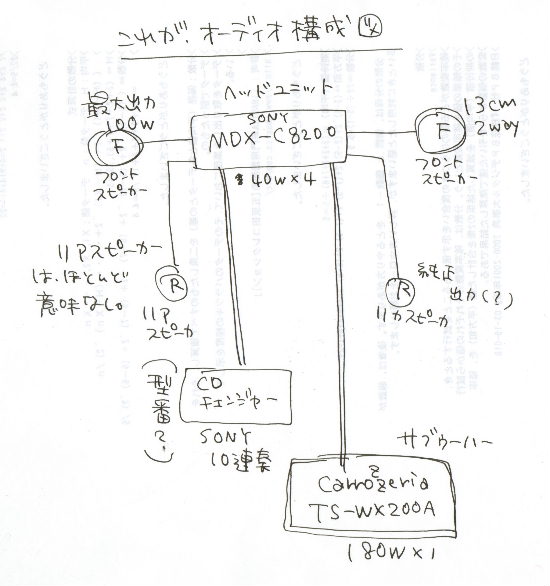 これが、オーディオ構成図
ヘッドユニット
最大出力
100W
F
フロント
スピーカー
SONY
MDX-C8200
40W×4
F
13cm
2way
フロント
スピーカー
リアスピーカー
は、ほとんど
意味なし。
R
リア
スピーカ
R
純正
出力(?)
リアスピーカ
型番?
CD
チェンジャー
SONY
10連奏
サブウーハー
Carrozzeria
TS-WX200A
180W×1